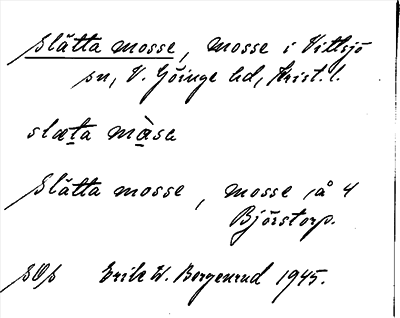 Slätta mosse, mosse i Vittsjö
sn, V. Göinge hd, Krist. l.
slæta màsa
Slätta mosse, mosse, å 4
Björstorp.
SOS Erik W. Borgenrud 1945.